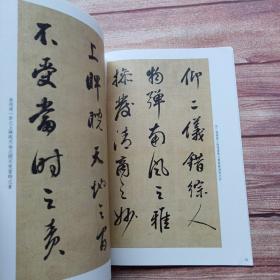 仰二儀錯綜人
物彈南風之雅
操發清商之妙
上睥睨天地之間
不受當時之責